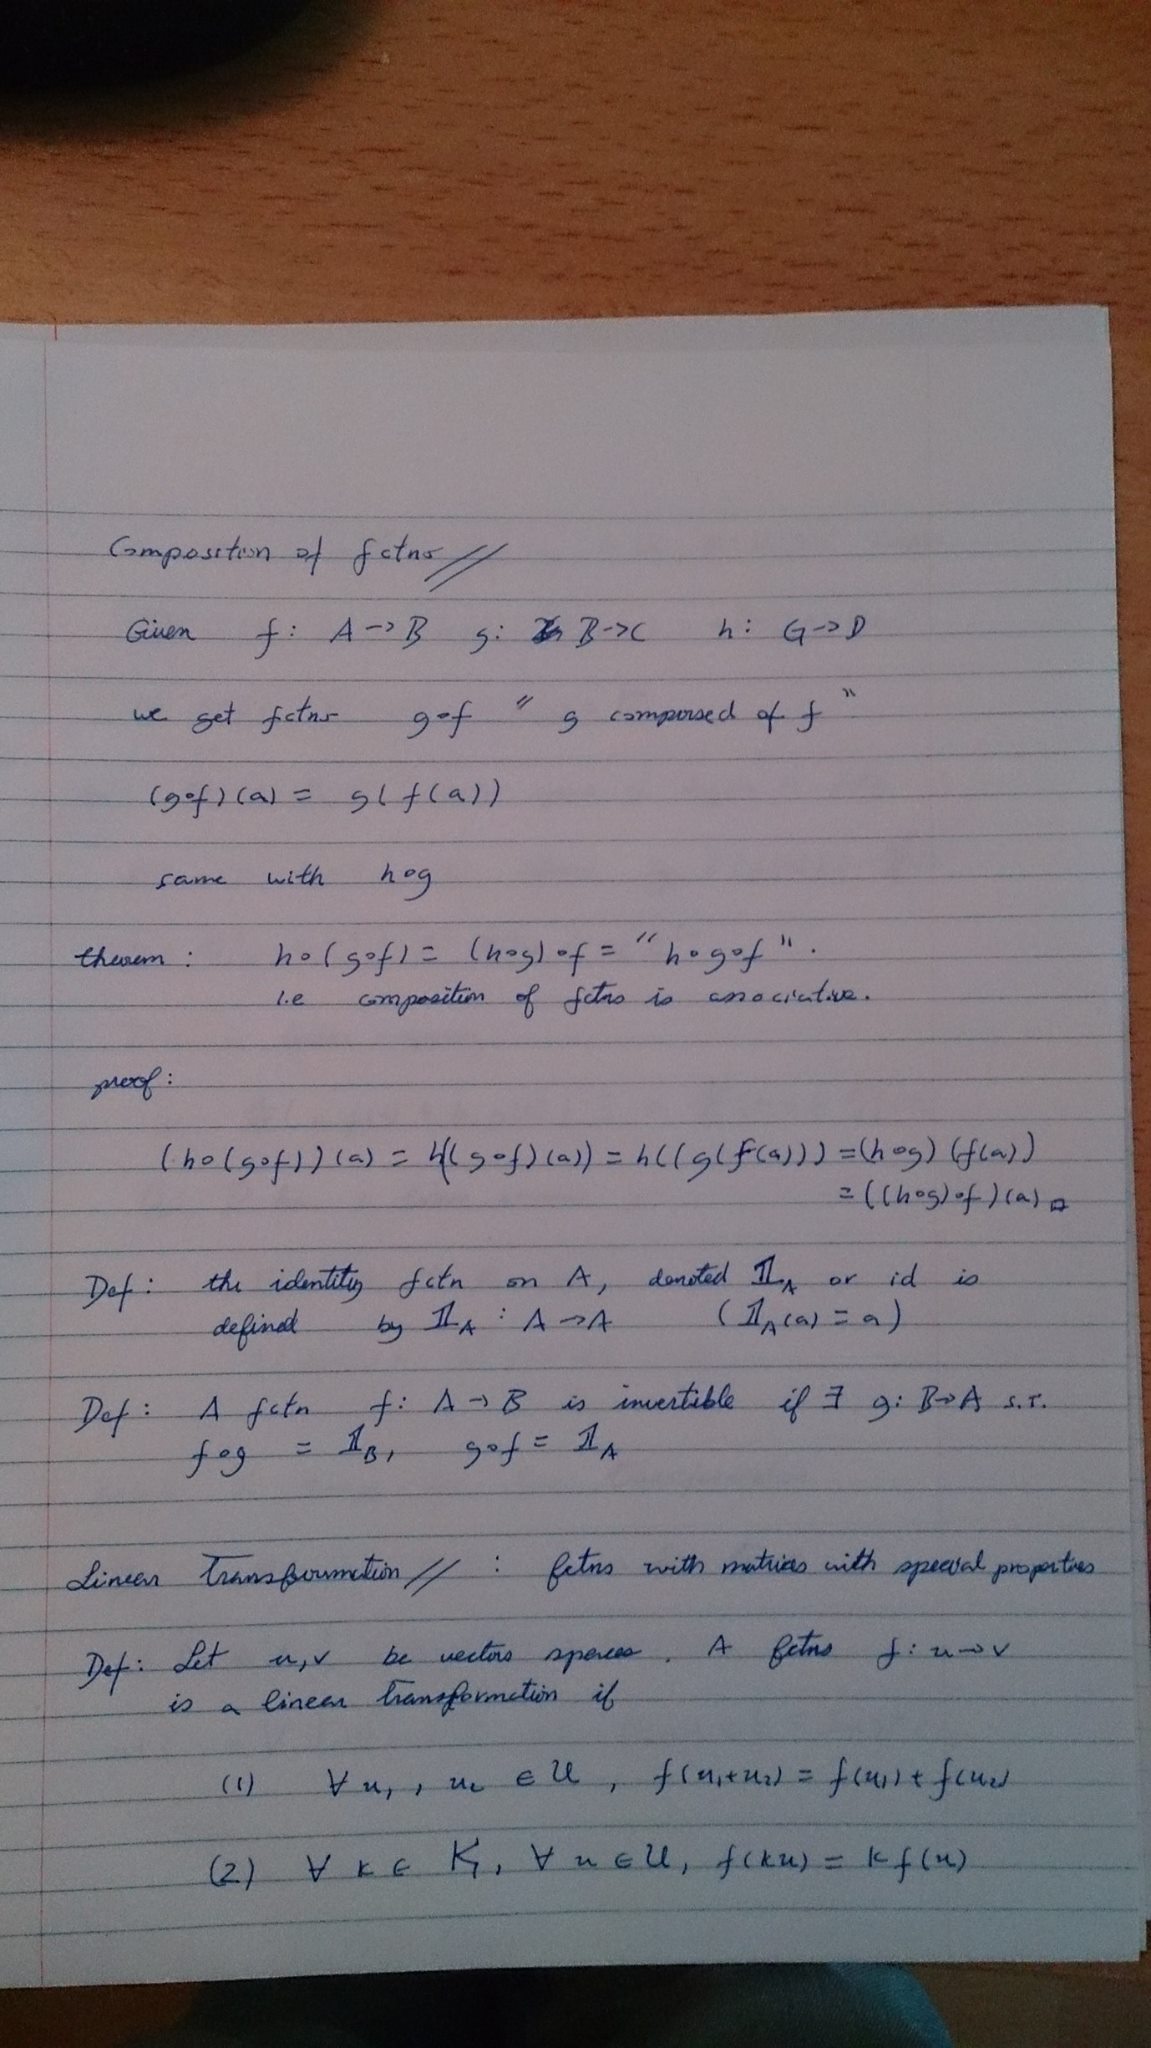 Composition of fctns //
Given f: A → B g: B → C h: G → D
we get fctns g∘f " g composed of f "
(g∘f)(a) = g(f(a))
same with h∘g
theorem : h∘(g∘f) = (h∘g)∘f = "h∘g∘f".
i.e composition of fctns is associative.
proof:
(h∘(g∘f))(a) = h((g∘f)(a)) = h((g(f(a))) = (h∘g)(f(a))
= ((h∘g)∘f)(a) □
Def: the identity fctn on A, denoted 𝟙_A or id is
defined by 𝟙_A : A → A (𝟙_A(a) = a)
Def: A fctn f: A → B is invertible if ∃ g: B → A s.t.
f∘g = 𝟙_B, g∘f = 𝟙_A
Linear Transformation // : fctns with matrices with special properties
Def: Let u,v be vectors spaces. A fctns f: u → v
is a linear transformation if
(1) ∀ u₁, u₂ ∈ U, f(u₁+u₂) = f(u₁) + f(u₂)
(2) ∀ k ∈ K, ∀ u ∈ U, f(ku) = k f(u)